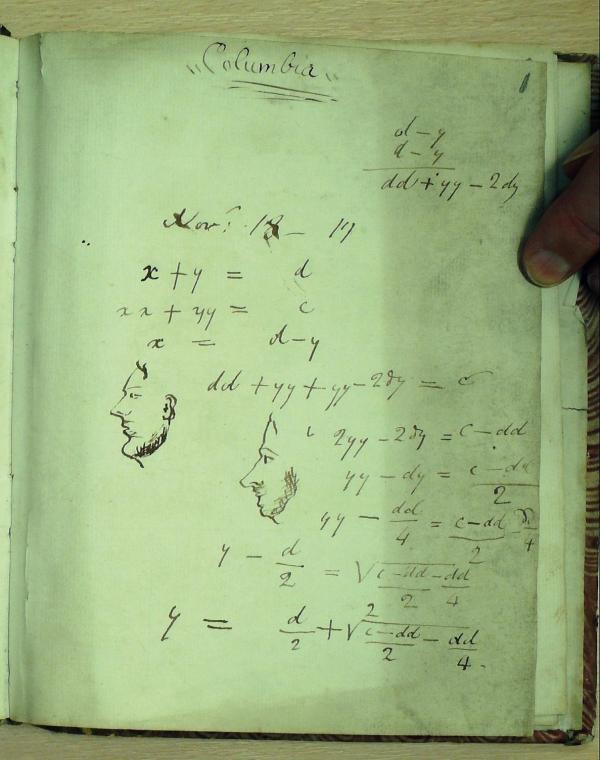 "Columbia"
1
d - y
d - y
dd + yy - 2dy
Nov.
x + y = d
xx + yy = c
x = d - y
dd + yy + yy - 2dy = c
2yy - 2dy = c - dd
yy - dy = c - dd / 2
yy - dd/4 = c - dd / 2 dd/4
y - d/2 = √ c - dd / 2 - dd/4
y = d/2 + √ c - dd / 2 - dd/4.